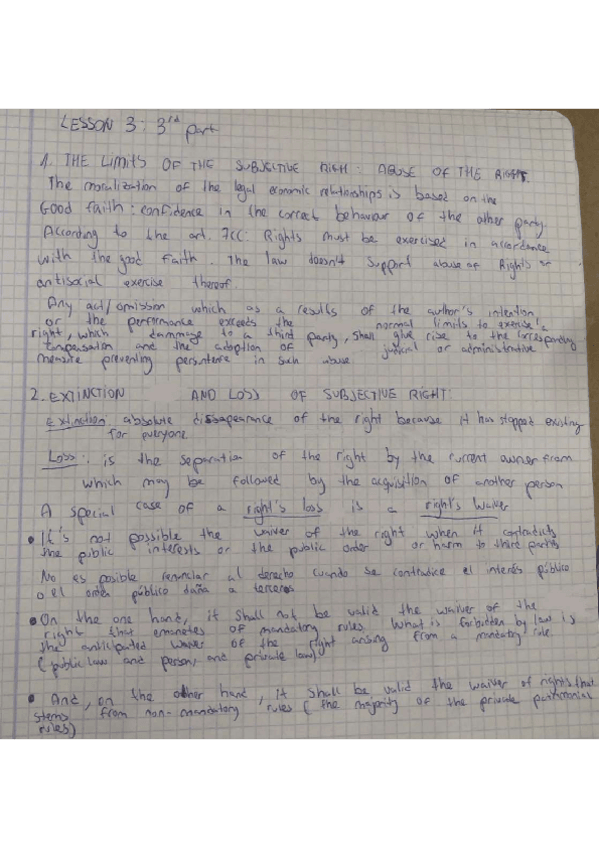 LESSON 3: 3rd part
1. THE Limits OF THE SUBJECTIVE RIGH: ABUSE OF THE RIGHT.
The moralization of the legal economic relationships is based on the
Good faith: confidence in the correct behaviour of the other party
According to the art. 7CC: Rights must be exercised in accordance
with the good faith. The law doesn't support abuse of Rights or
antisocial exercise thereof.
Any act/omission which as a results of the author's intention,
or the performance exceeds the normal limits to exercise a
right, which dammage to a third party, shall give rise to the corresponding
compensation and the adoption of judical or administrative
measure preventing persistence in such abuse
2. EXTINCTION AND LOSS OF SUBJECTIVE RIGHT:
Extinction: absolute dissapearance of the right because it has stopped existing
for everyone
Loss: is the separation of the right by the current owner from
which may be followed by the acquisition of another person
A special case of a right's loss is a right's waiver
• It's not possible the waiver of the right when it contradicts
the public interests or the public order or harm to third parties
No es posible renunciar al derecho cuando se contradice el interés público
o el orden público daña a terceros
• On the one hand, it shall not be valid the waiver of the
right that emanates of mandatory rules. What is forbidden by law is
the anticipated waiver of the right arising from a mandatory rule
(public law and person, and private law)
• And, on the other hand, it shall be valid the waiver of rights that
stems from non-mandatory rules (the majority of the private patrimonial
rules)